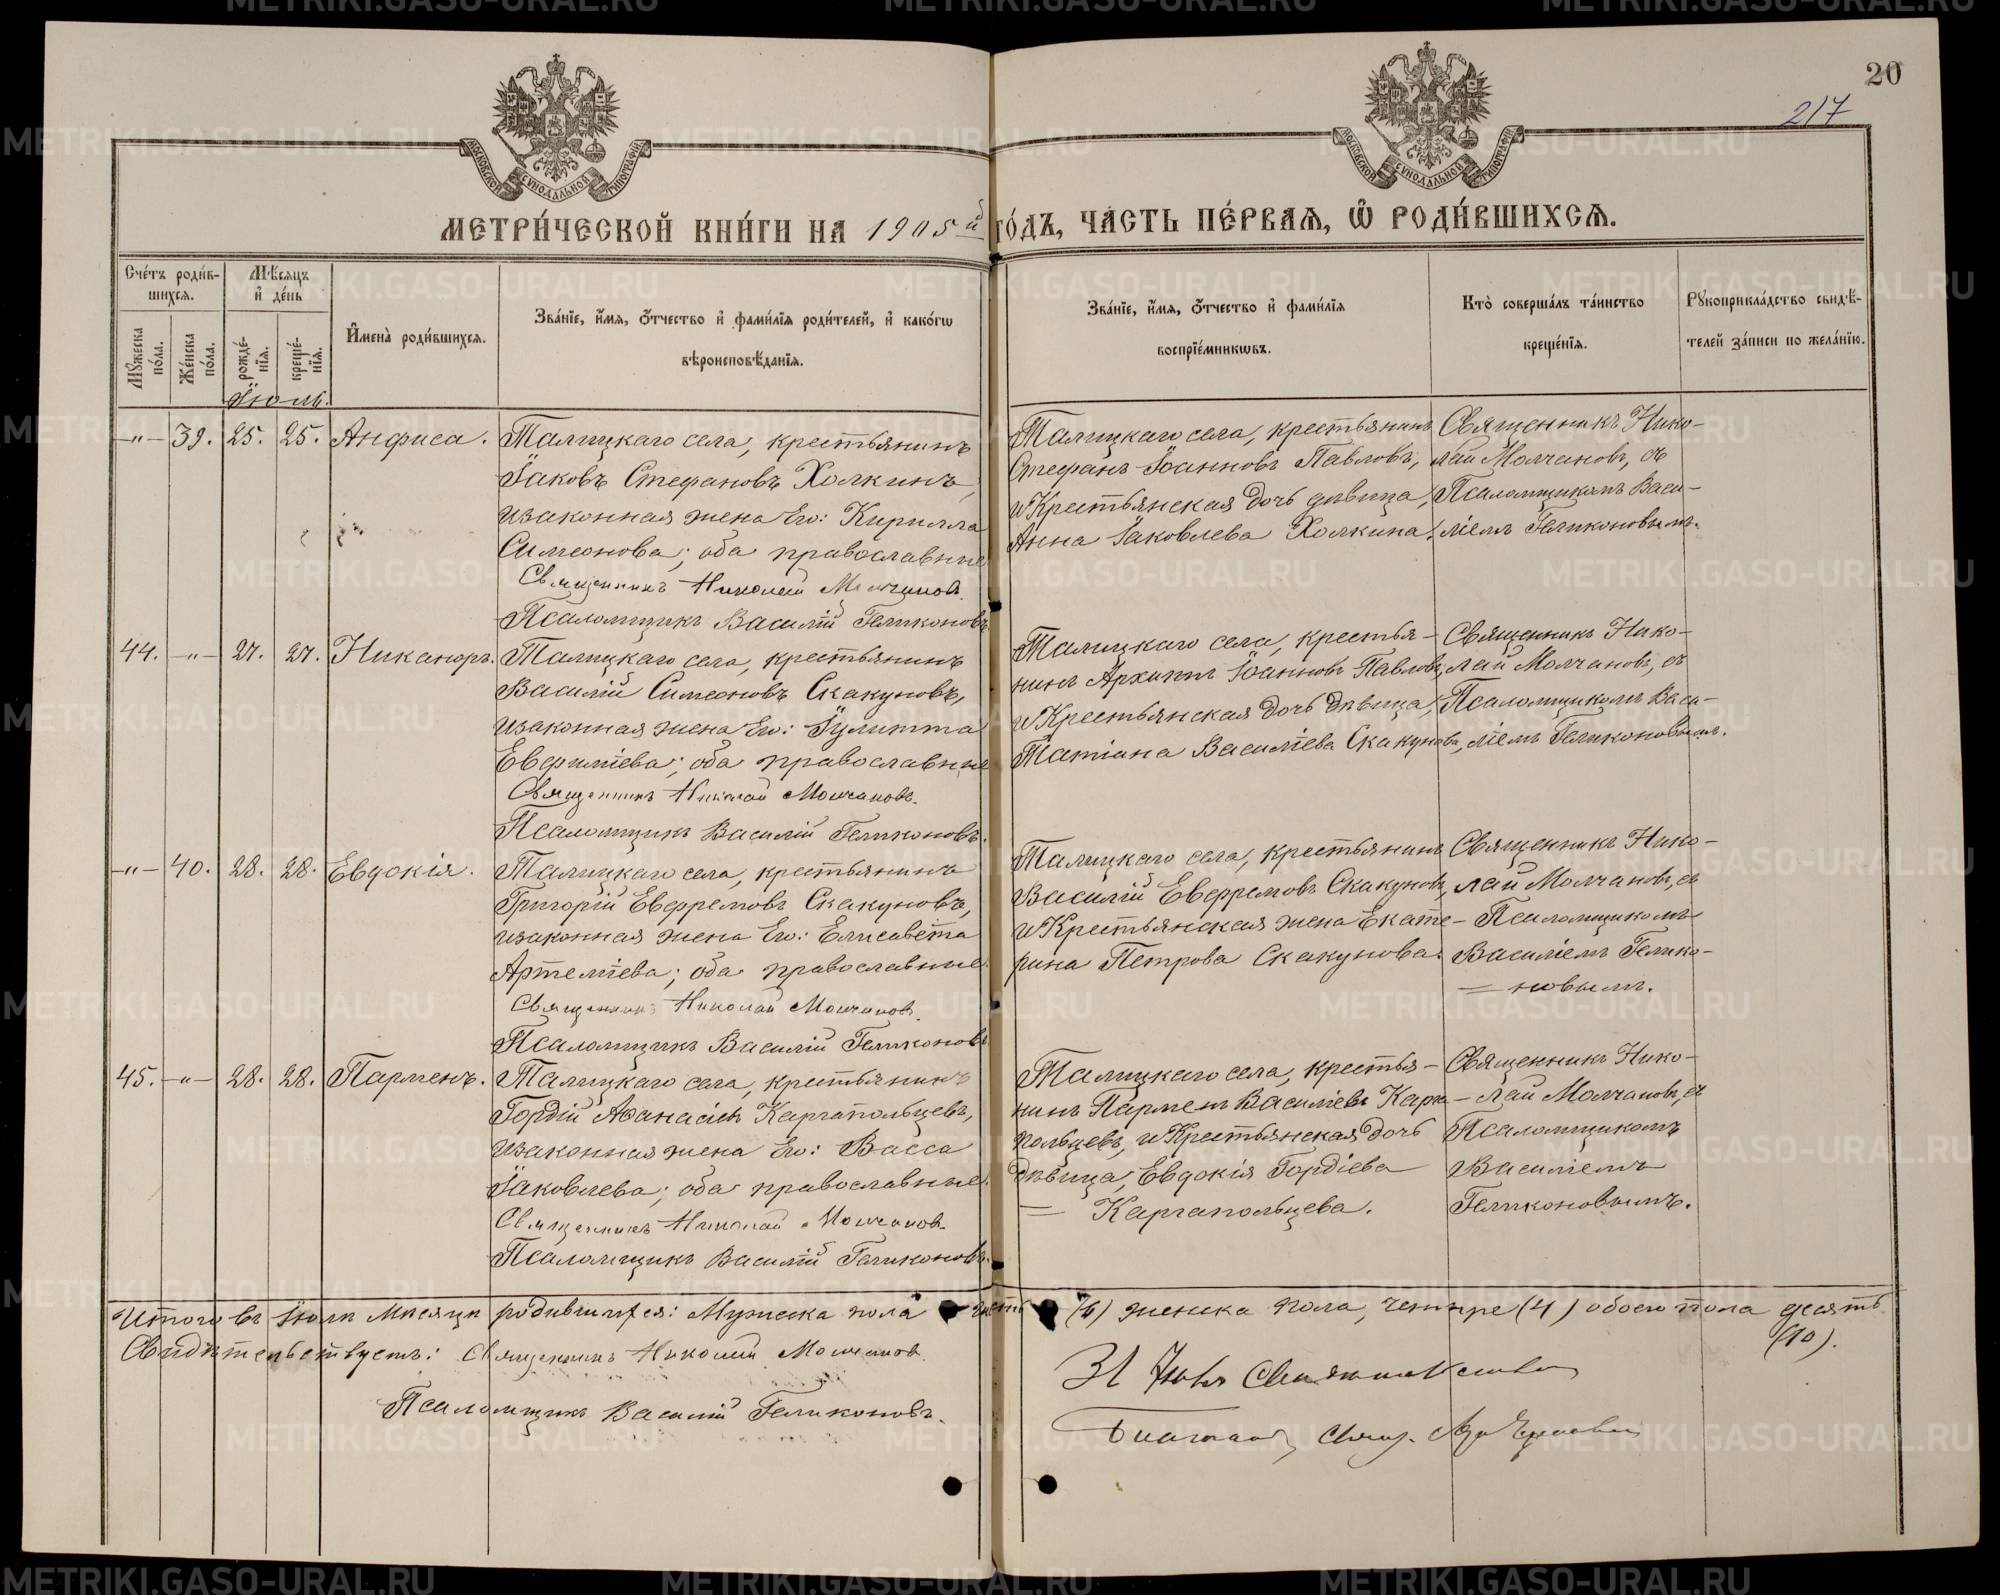 20
217
МОСКОВСКОЙ СѴНОДАЛЬНОЙ ТИПОГРАФІИ
МОСКОВСКОЙ СѴНОДАЛЬНОЙ ТИПОГРАФІИ
МЕТРИ́ЧЕСКОЙ КНИ́ГИ НА 1905й ГО́ДЪ, ЧА́СТЬ ПЕ́РВАЯ, Ѡ РОДИ́ВШИХСЯ.
Сче́тъ роди́в-
шихся.
Мѣ́сяцъ
и де́нь
Му́жеска по́ла.
Же́нска по́ла.
рожде́-
нїя.
креще́-
нїя.
Имена̀ роди́вшихся.
Зва́нїе, и́мя, о́тчество и фами́лїя роди́телей, и како́гѡ
вѣроисповѣ́данїя.
Зва́нїе, и́мя, о́тчество и фами́лїя
воспрїе́мникѡвъ.
Кто̀ соверша́лъ та́инство
креще́нїя.
Рукоприкла́дство свидѣ́-
телей за́писи по жела́нїю.
Іюль.
-„- 39. 25. 25. Анфиса.
Талицкаго села, крестьянинъ
Іаковъ Стефановъ Холкинъ,
и законная жена Его: Кирилла
Симеонова; оба православные
Священникъ Николай Молчановъ.
Псаломщикъ Василій Геликоновъ
Талицкаго села, крестьянинъ
Стефанъ Іоанновъ Павловъ,
и Крестьянская дочь дѣвица,
Анна Іаковлева Холкина.
Священникъ Нико-
лай Молчановъ, съ
Псаломщикомъ Васи-
ліемъ Геликоновымъ.
44. -„- 27. 27. Никаноръ.
Талицкаго села, крестьянинъ
Василій Симеоновъ Скакуновъ,
и законная жена Его: Іулитта
Евфиміева; оба православные
Священникъ Николай Молчановъ.
Псаломщикъ Василій Геликоновъ.
Талицкаго села, крестья-
нинъ Архиппъ Іоанновъ Павловъ,
и Крестьянская дочь дѣвица,
Татіана Василіева Скакунова,
Священникъ Нико-
лай Молчановъ, съ
Псаломщикомъ Васи-
ліемъ Геликоновымъ.
-„- 40. 28. 28. Евдокія.
Талицкаго села, крестьянинъ
Григорій Евфремовъ Скакуновъ,
и законная жена Его: Елисавета
Артеміева; оба православные.
Священникъ Николай Молчановъ.
Псаломщикъ Василій Геликоновъ
Талицкаго села, крестьянинъ
Василій Евфремовъ Скакуновъ,
и Крестьянская жена Екате-
рина Петрова Скакунова.
Священникъ Нико-
лай Молчановъ, съ
Псаломщикомъ
Василіемъ Гелико-
= новымъ.
45. -„- 28. 28. Парменъ.
Талицкаго села, крестьянинъ
Гордій Аѳанасіевъ Каргапольцевъ,
и законная жена Его: Васса
Іаковлева; оба православные.
Священникъ Николай Молчановъ.
Псаломщикъ Василій Геликоновъ.
Талицкаго села, крестья-
нинъ Парменъ Василіевъ Карга-
польцевъ, и Крестьянская дочь
дѣвица, Евдокія Гордіева
= Каргапольцева.
Священникъ Нико-
лай Молчановъ, съ
Псаломщикомъ
Василіемъ
Геликоновымъ.
Итого въ Іюлѣ мѣсяцѣ родившихся: Мужеска пола шесть (6) женска пола, четыре (4) обоего пола десять
(10).
Свидѣтельствуемъ: Священникъ Николай Молчановъ.
Псаломщикъ Василій Геликоновъ.
31 Іюля
Благочинный, Свящ.